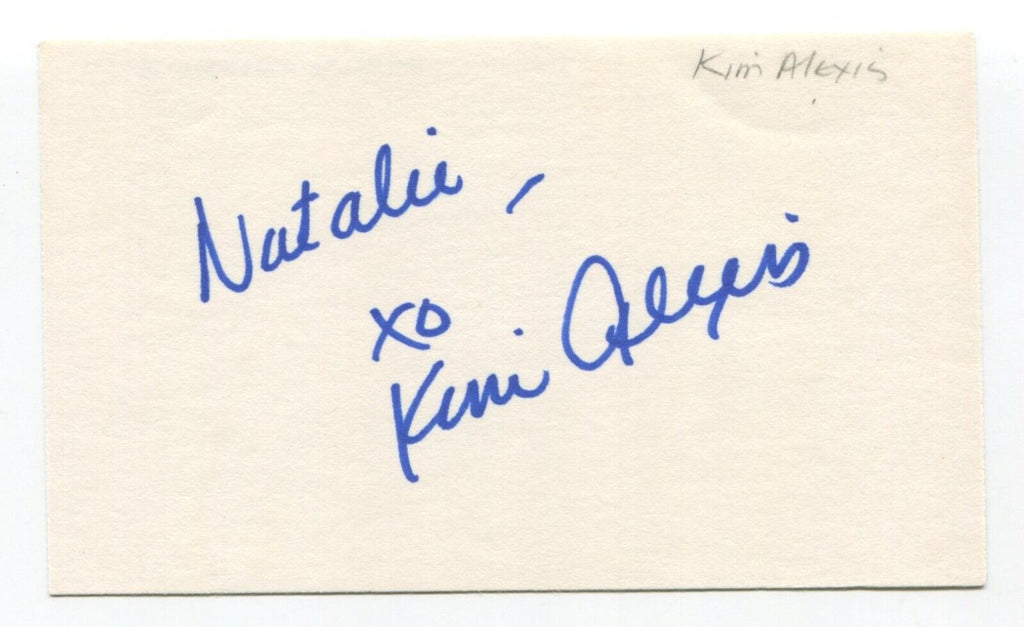 Kim Alexis
Natalie -
xo
Kim Alexis